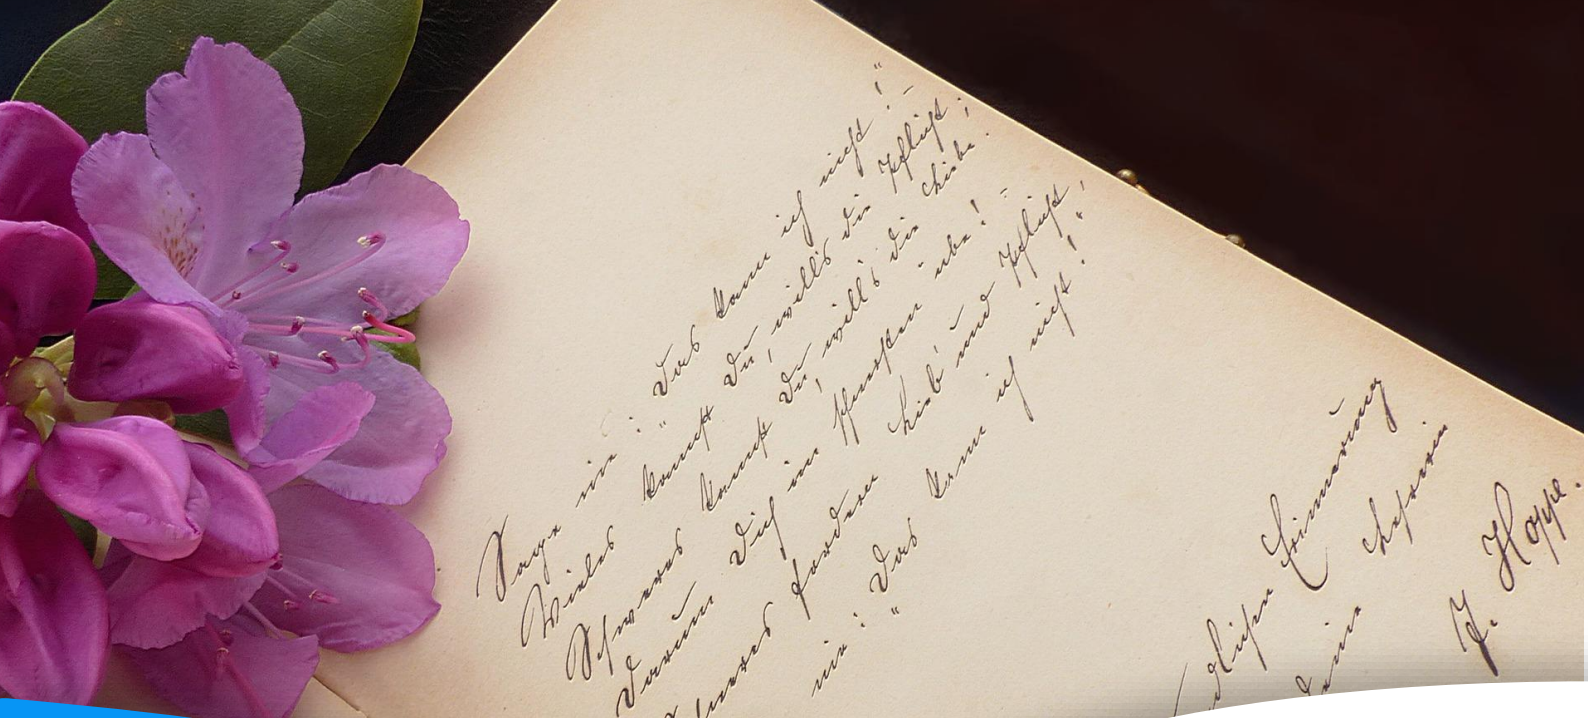 Sage nie: „Das kann ich nicht!“
Vieles kannst Du, will's die Pflicht;
Schweres kannst Du, will's die Liebe.
Darum Dich im Schwersten übe!
Schweres fordern Lieb' und Pflicht,
nie: „Das kann ich nicht!“
Erinnerung
Deine Lehrerin
J. Hoppe.